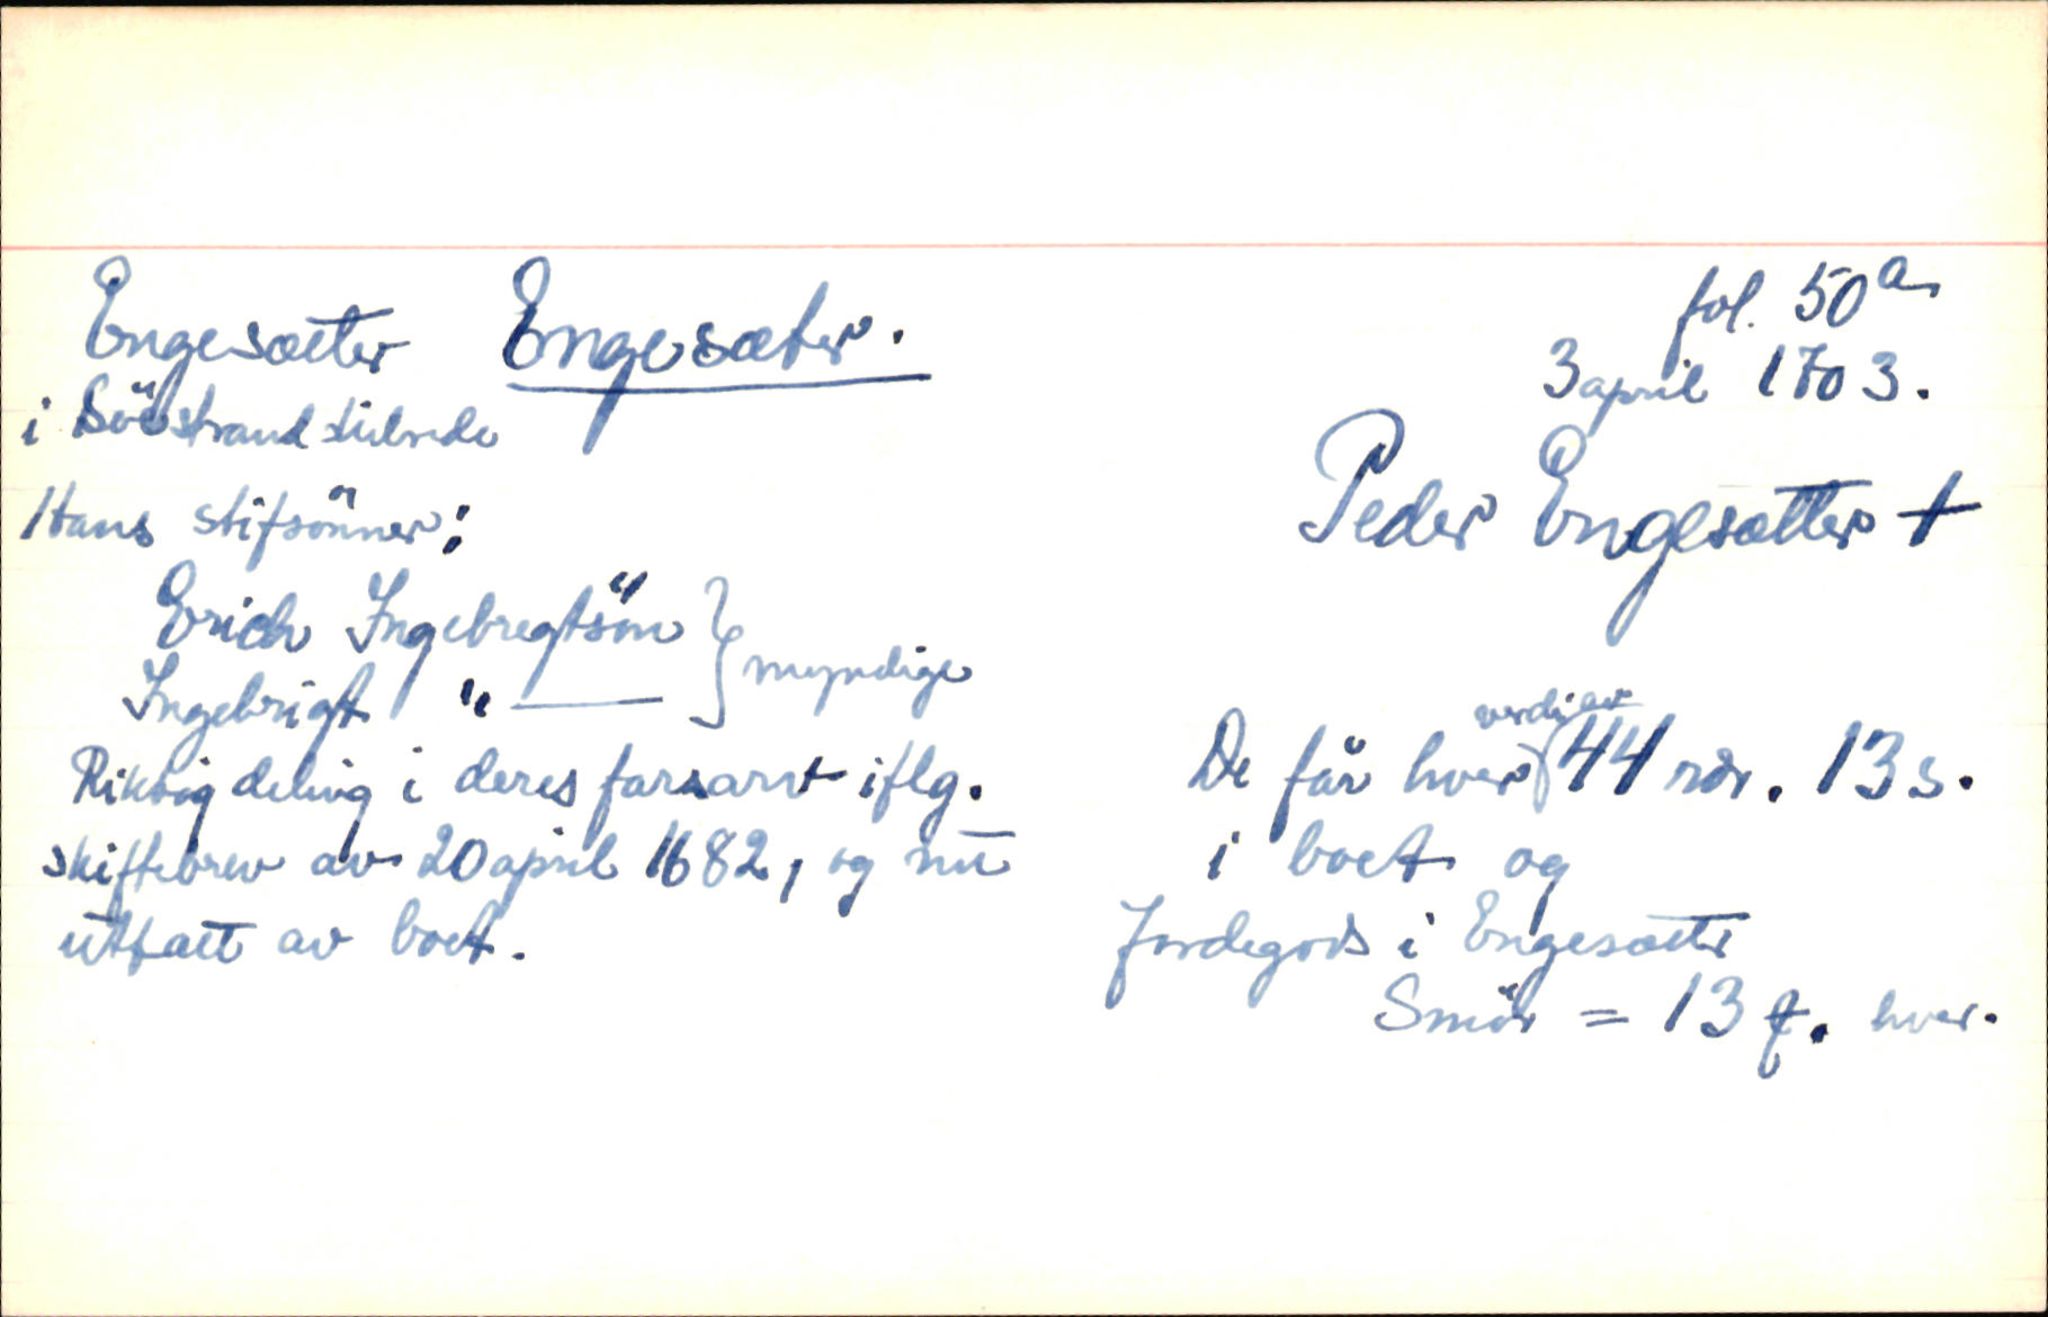 Engesætter Engesæter.
fol. 50a
i Söestrand tilrede
3 april 1703.
Peder Engesætter +
Hans stifsönner:
Erich Ingebregtsön } myndige
Ingebrigt " —
Riktig deling i deres farsarv iflg.
skiftebrev av 20 april 1682, og nu
utfaet av boet.
De får hver verdi av 44 rdr. 13 s.
i boet og
Jordegods i Engesætter
Smör = 13 f. hver.